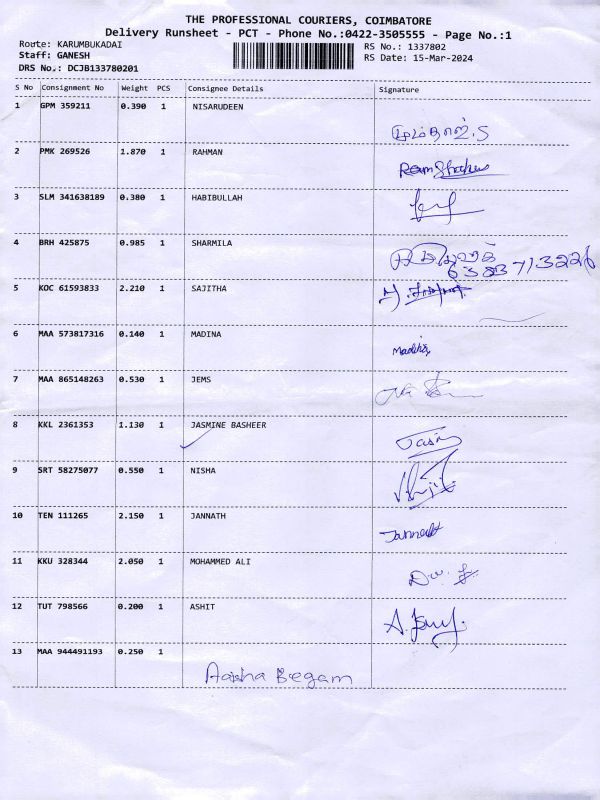 THE PROFESSIONAL COURIERS, COIMBATORE
Delivery Runsheet - PCT - Phone No.:0422-3505555 - Page No.:1
Route: KARUMBUKADAI RS No.: 1337802
Staff: GANESH RS Date: 15-Mar-2024
DRS No.: DCJB133780201
S No Consignment No Weight PCS Consignee Details Signature
1 GPM 359211 0.390 1 NISARUDEEN
2 PMK 269526 1.870 1 RAHMAN
3 SLM 341638189 0.380 1 HABIBULLAH
4 BRH 425875 0.985 1 SHARMILA
5 KOC 61593833 2.210 1 SAJITHA
6 MAA 573817316 0.140 1 MADINA
7 MAA 865148263 0.530 1 JEMS
8 KKL 2361353 1.130 1 JASMINE BASHEER
9 SRT 58275077 0.550 1 NISHA
10 TEN 111265 2.150 1 JANNATH
11 KKU 328344 2.050 1 MOHAMMED ALI
12 TUT 798566 0.200 1 ASHIT
13 MAA 944491193 0.250 1
Aaisha Begam